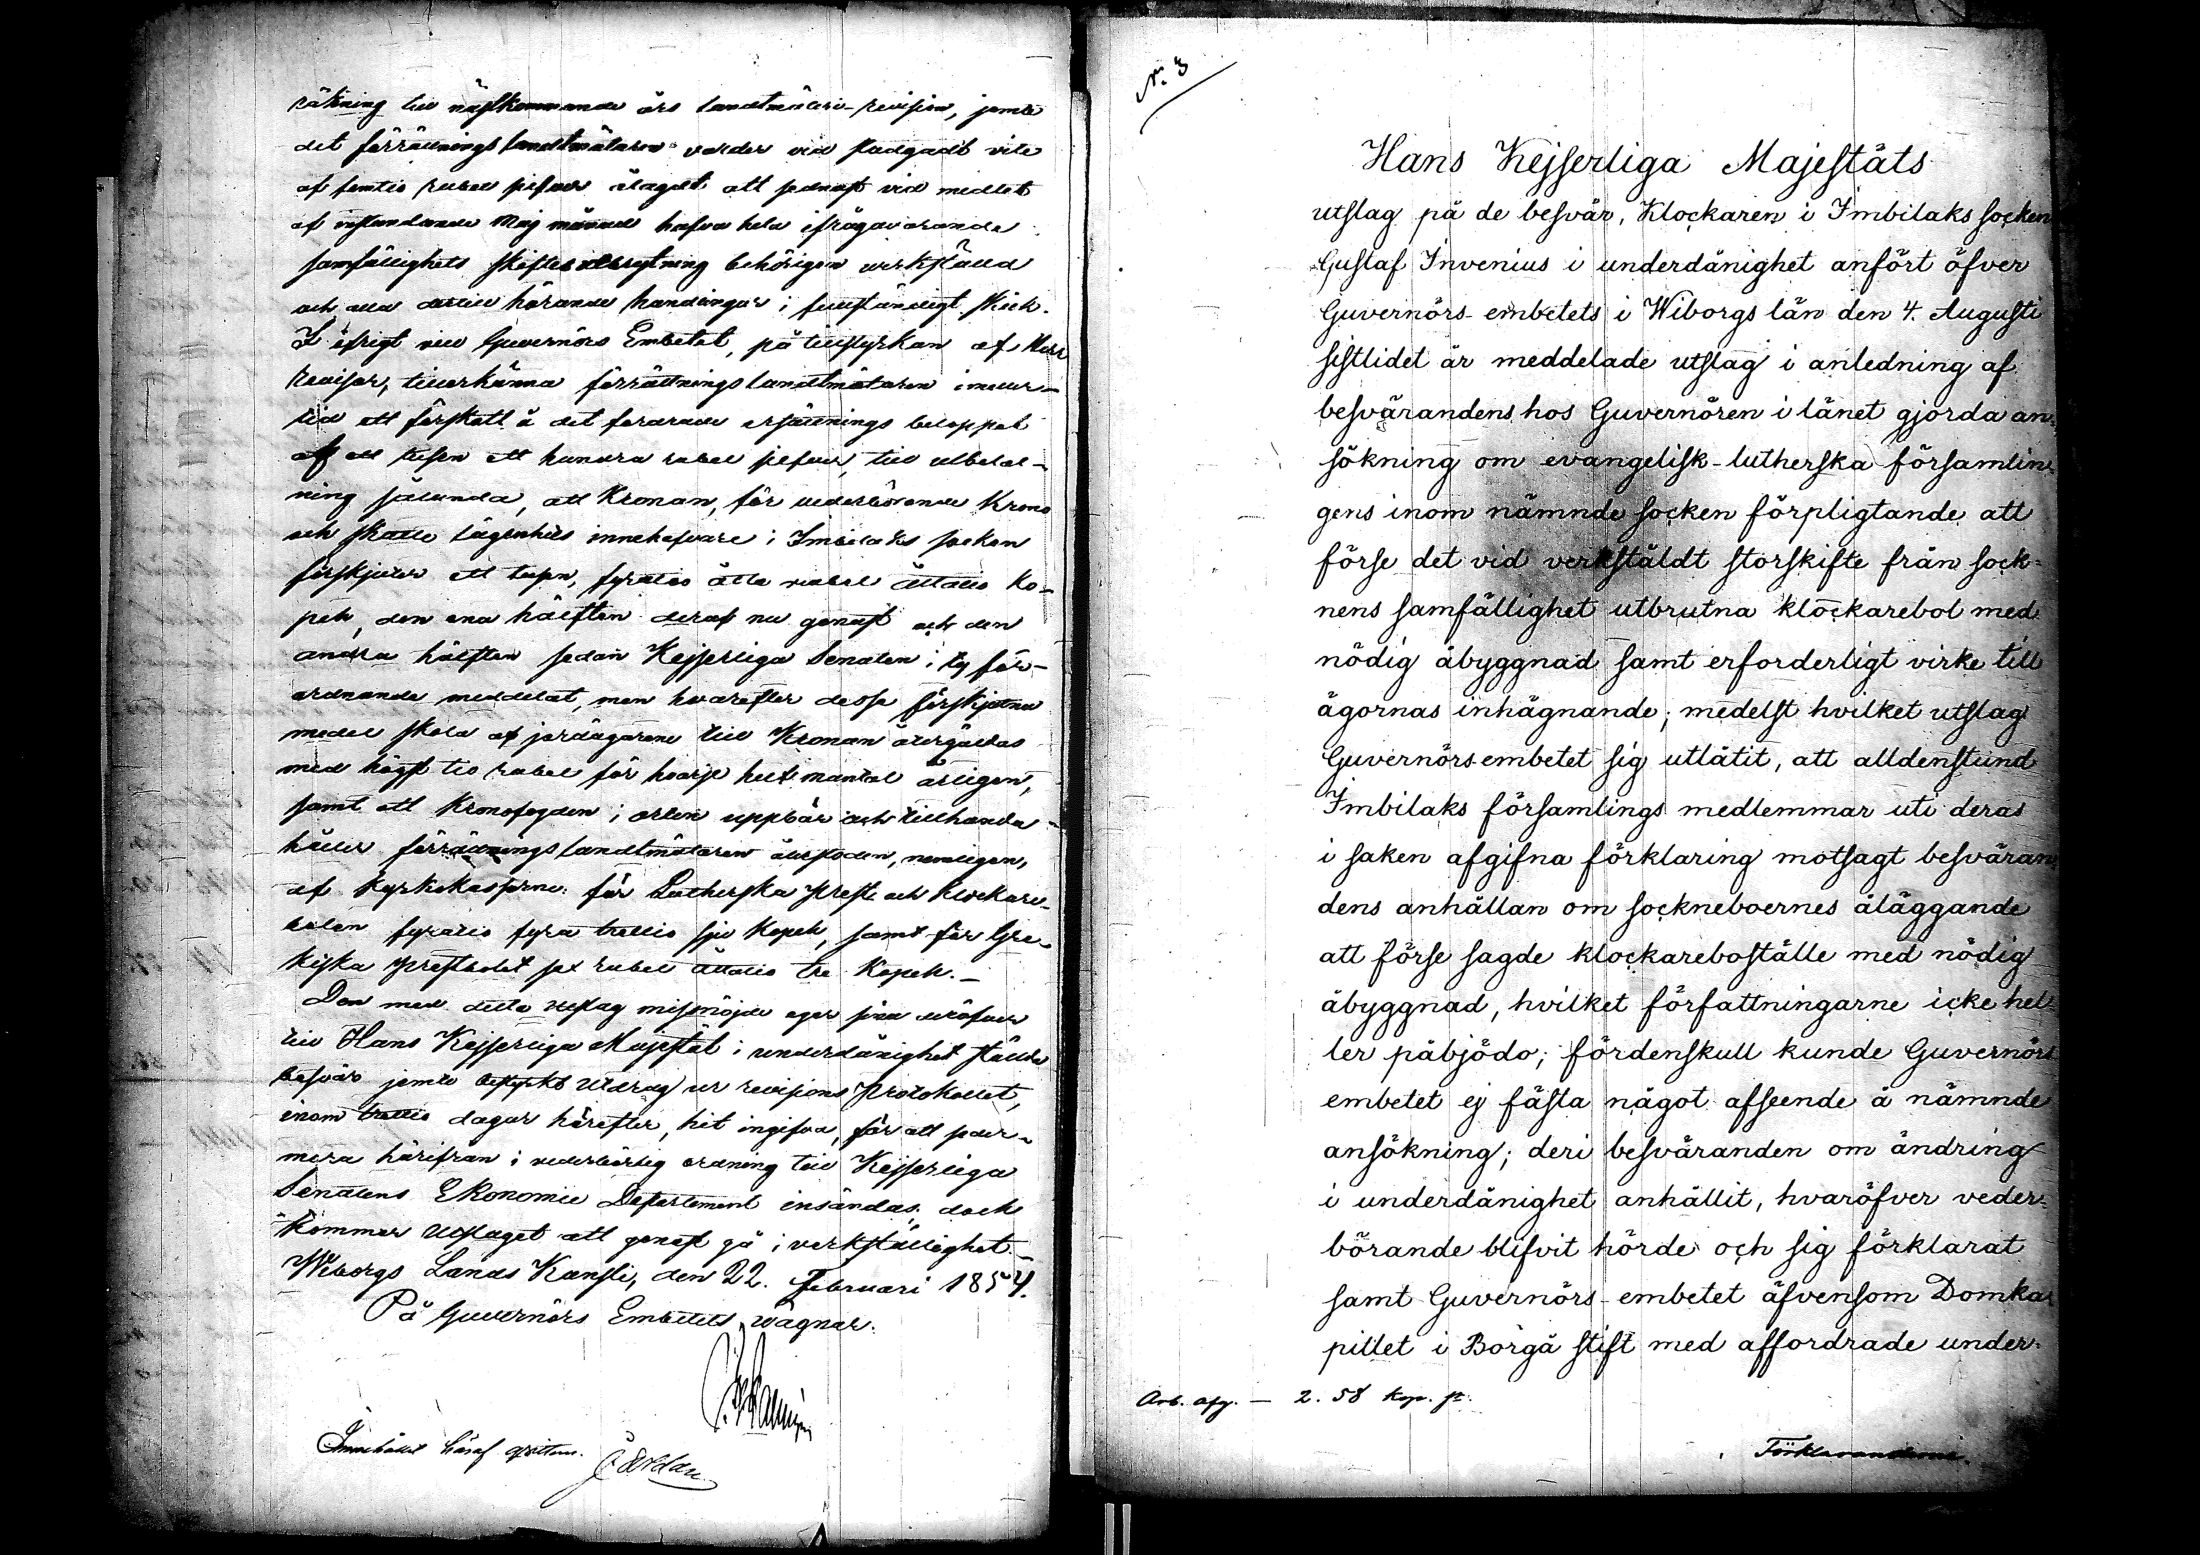 räkning till nästkommande års landtmäteri-revision, jemte
det förrättnings landtmätaren varder vid stadgadt vite
af femtio rubel silfver ålagdt att sednast vid medlet
af instundande Maj månad hafva hela ifrågavarande
samfällighets skiftes utbrytning behörigen verkställd
och alla dertill hörande handlingar i fullständigt skick.
I öfrigt vill Guvernörs Embetet, på tillstyrkan af Herr
Revisor, tillerkänna förrättnings landtmätaren imeder-
tid ett förskott å det fordrade ersättnings beloppet
af ett tusen ett hundra rubel silfver, till utbetal-
ning sålunda, att Kronan, för vederbörande Krono
och skatte lägenhets innehafvare i Imbilaks socken
förskjuter ett tusen, fyratio åtta rubel åttatio ko-
pek, den ena hälften deraf nu genast och den
andra hälften sedan Kejserliga Senaten i ty för-
ordnande meddelat, men hvarefter desse förskjutna
medel skola af jordägarene till Kronan återgäldas
med högst tio rubel för hvarje helt mantal årligen,
samt att Kronofogden i orten uppbär och tillhanda-
håller förrättnings landtmätaren återstoden, nemligen,
af Kyrkokassorne för Lutherska prest och klockare-
bolen fyratio fyra rubel trettio sju kopek, samt för Gre-
kiska prestbolet sex rubel åttatio tre kopek.-
Den med detta utslag missnöjde eger sina deröfver
till Hans Kejserliga Majestät i underdånighet ställde
besvär jemte bestyrkt utdrag ur revisions protokollet,
inom trettio dagar härefter, hit ingifva, för att seder-
mera härifrån i vederbörlig ordning till Kejserliga
Senatens Ekonomie Departement insändas; dock
kommer Utslaget att genast gå i verkställighet.-
Wiborgs Lands Kansli, den 22. Februari 1854.
På Guvernörs Embetets vägnar:
Innehållet häraf
N:o 3
Hans Kejserliga Majestäts
utslag på de besvär, Klockaren i Imbilaks socken
Gustaf Invenius i underdånighet anfört öfver
Guvernörs-embetets i Wiborgs län den 4. Augusti
sistlidet år meddelade utslag i anledning af
besvärandens hos Guvernören i länet gjorda an-
sökning om evangelisk-lutherska församlin-
gens inom nämnde socken förpligtande att
förse det vid verkstäldt storskifte från sock-
nens samfällighet utbrutna klockarebol med
nödig åbyggnad samt erforderligt virke till
ägornas inhägnande; medelst hvilket utslag
Guvernörs-embetet sig utlåtit, att alldenstund
Imbilaks församlings medlemmar uti deras
i saken afgifna förklaring motsagt besväran-
dens anhållan om sockneboernes åläggande
att förse sagde klockareboställe med nödig
åbyggnad, hvilket författningarne icke hel-
ler påbjödo; fördenskull kunde Guvernörs
embetet ej fästa något afseende å nämnde
ansökning; deri besväranden om ändring
i underdånighet anhållit, hvaröfver veder-
börande blifvit hörde och sig förklarat
samt Guvernörs-embetet äfvensom Domka-
pitlet i Borgå stift med affordrade under-
Arb. afg. - 2. 58 kop. sr.
Förklaranderne.